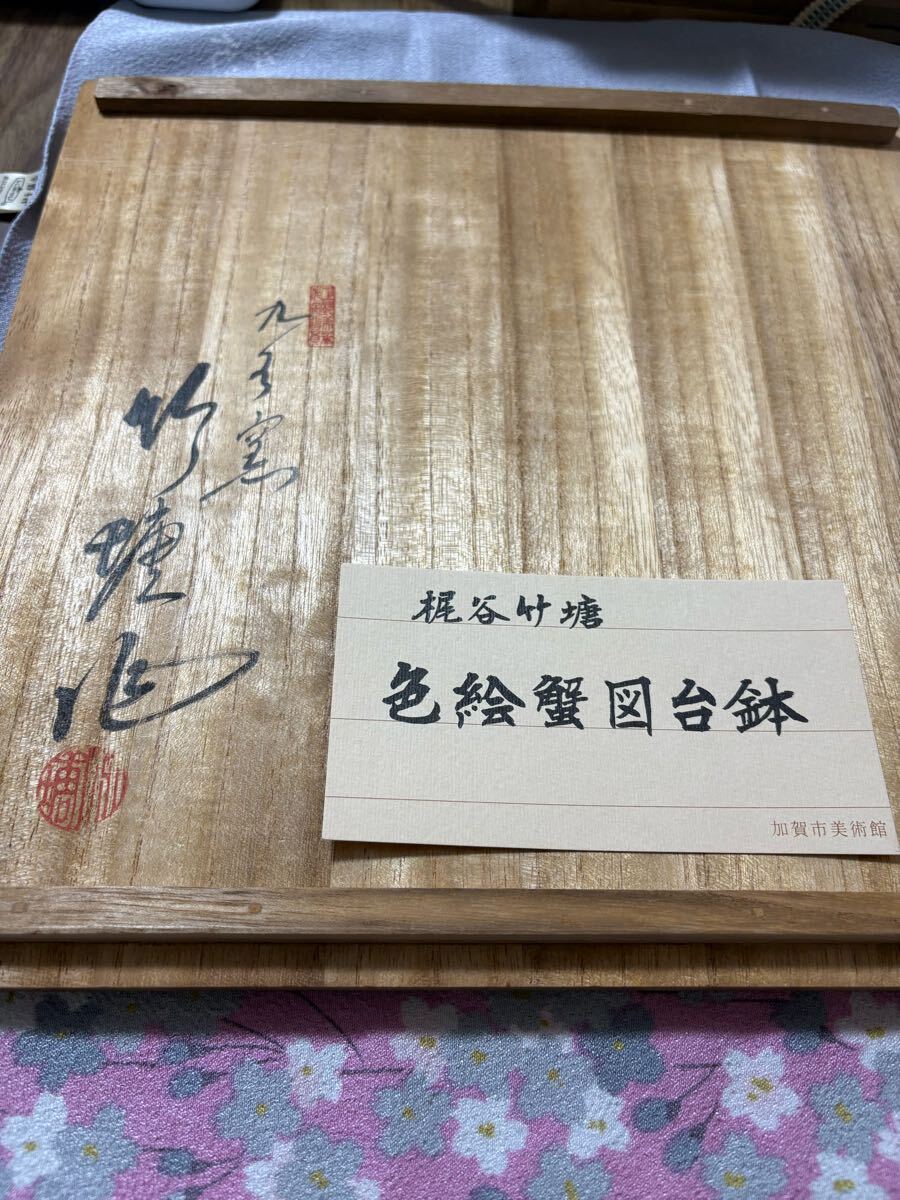 九谷窯
竹塘作
梶谷竹塘
色絵蟹図台鉢
加賀市美術館